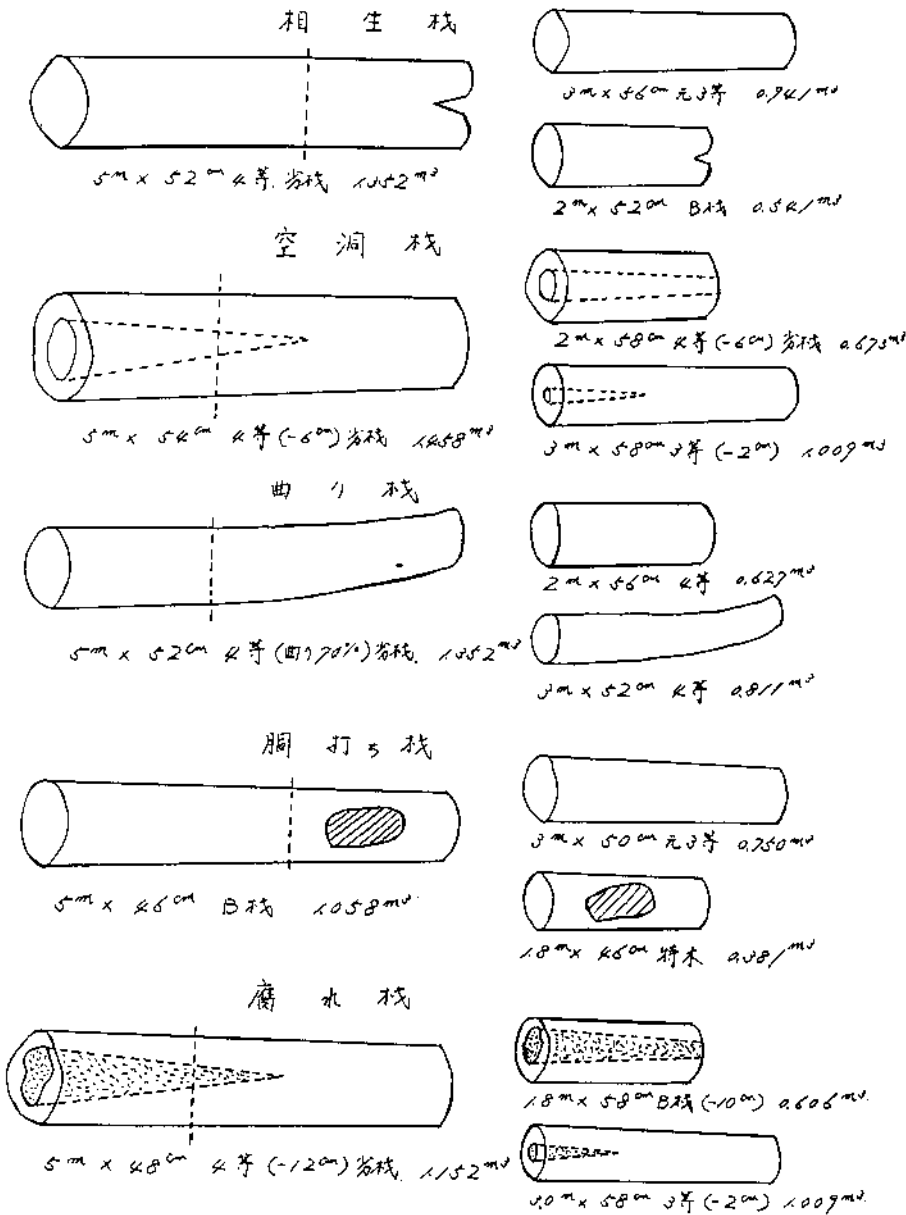 相生桟
5m × 52cm 4等.劣桟 1.352m³
3m × 56cm 元3等 0.941m³
2m × 52cm B桟 0.541m³
空洞桟
5m × 54cm 4等(-6cm)劣桟 1.458m³
2m × 58cm 4等(-6cm)劣桟 0.673m³
3m × 58cm 3等(-2cm) 1.009m³
曲り桟
5m × 52cm 4等(曲り70%)劣桟. 1.352m³
2m × 56cm 4等 0.627m³
3m × 52cm 4等 0.811m³
胴打ち桟
5m × 46cm B桟 1.058m³
3m × 50cm 元3等 0.750m³
1.8m × 46cm 特木 0.381m³
腐れ桟
5m × 48cm 4等(-12cm)劣桟. 1.152m³
1.8m × 58cm B桟(-10cm) 0.606m³.
3.0m × 58cm 3等(-2cm) 1.009m³